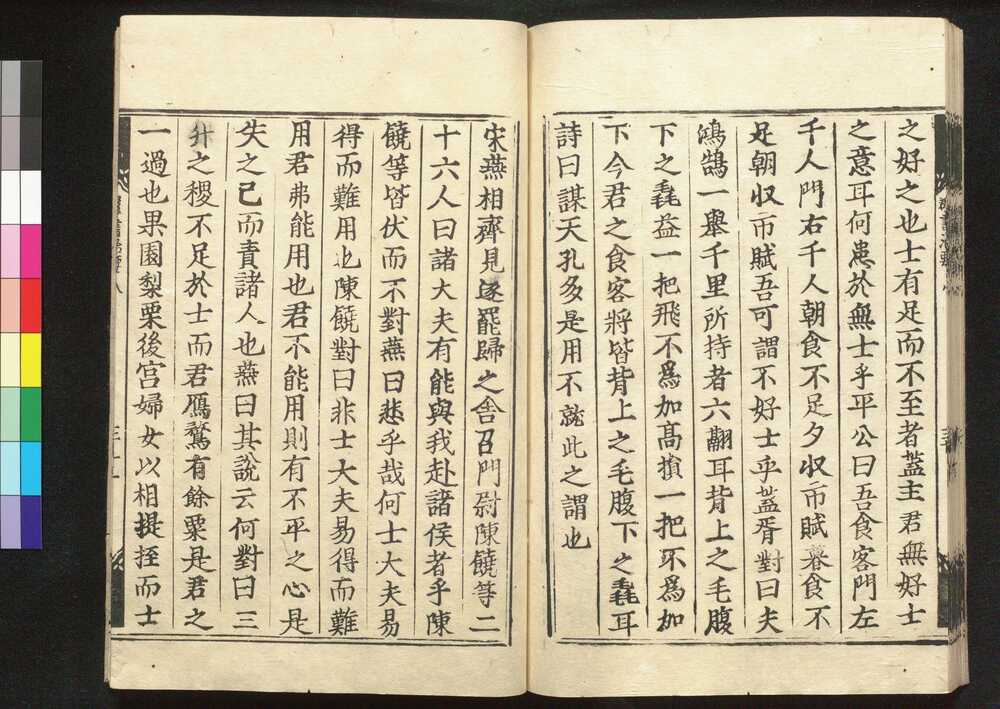 之好之也士有足而不至者蓋主君無好士
之意耳何患於無士乎平公曰吾食客門左
千人門右千人朝食不足夕収市賦暮食不
足朝収市賦吾可謂不好士乎蓋胥對曰夫
鴻鵠一舉千里所持者六翮耳背上之毛腹
下之毳益一把飛不爲加髙損一把不爲加
下今君之食客將皆背上之毛腹下之毳耳
詩曰謀夫孔多是用不就此之謂也
宋燕相齊見逐罷歸之舎召門尉陳饒等二
十六人曰諸大夫有能與我赴諸侯者乎陳
饒等皆伏而不對燕曰悲乎哉何士大夫易
得而難用也陳饒對曰非士大夫易得而難
用君弗能用也君不能用則有不平之心是
失之己而責諸人也燕曰其說云何對曰三
升之稷不足於士而君鴈鶩有餘粟是君之
一過也果園梨栗後宮婦女以相提挃而士